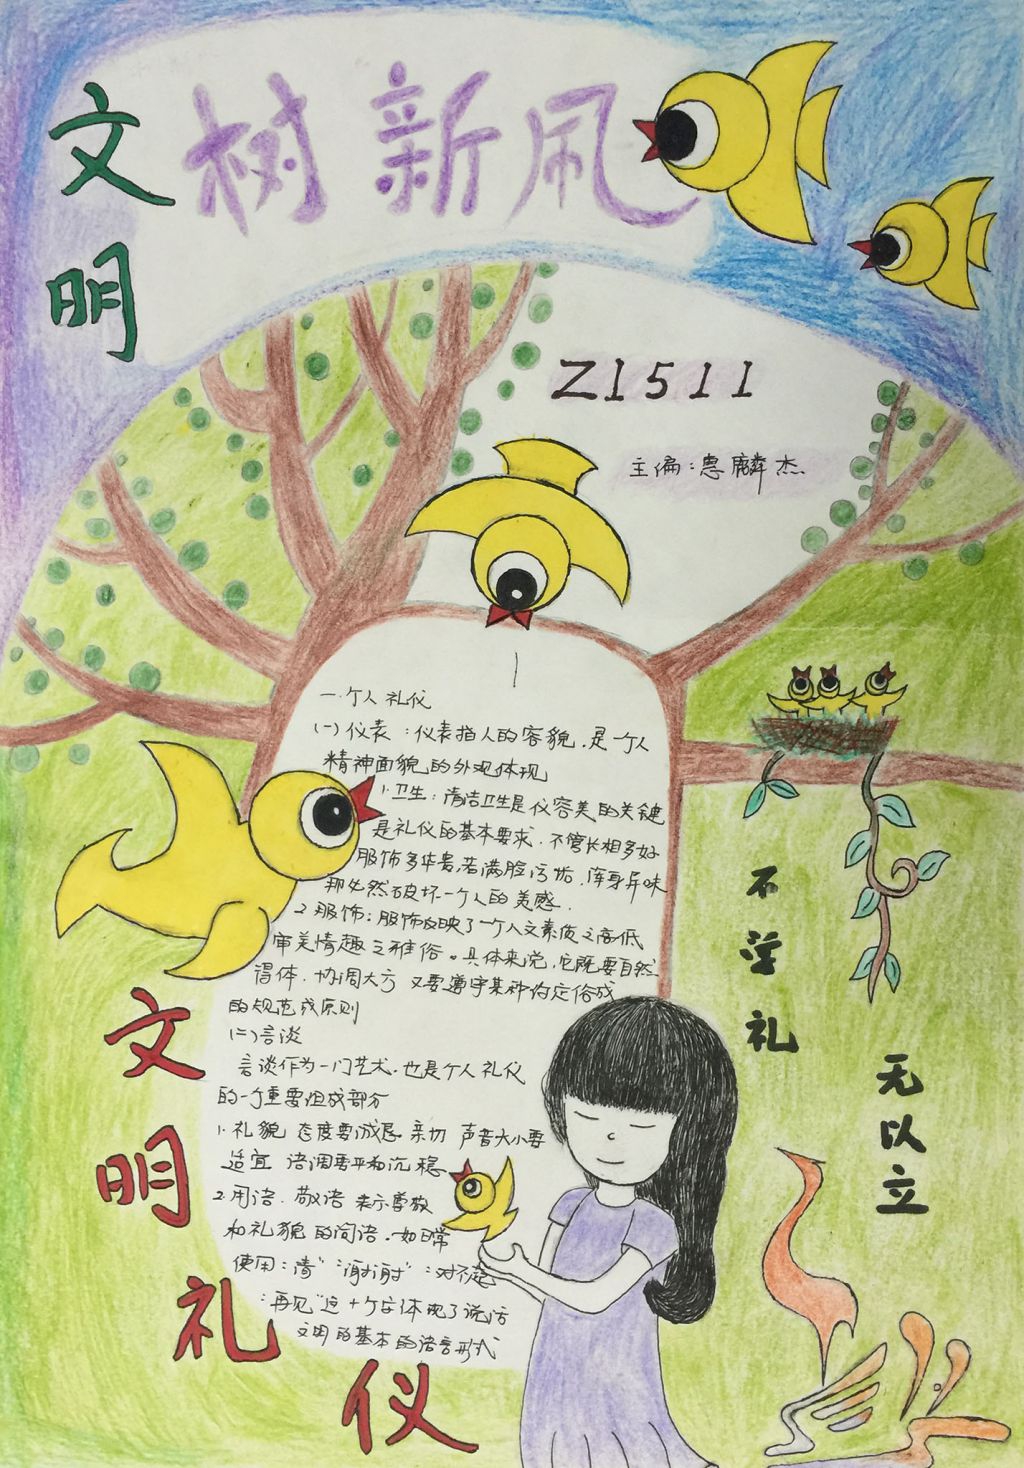 文明
树新风
Z1511
主编：惠麟杰
一.个人礼仪
(一)仪表：仪表指人的容貌,是一个人
精神面貌的外观体现
1.卫生：清洁卫生是仪容美的关键
是礼仪的基本要求.不管长相多好
服饰多华贵,若满脸污垢.浑身异味
那必然破坏一个人的美感.
2.服饰：服饰反映了一个人文素质之高低
审美情趣之雅俗。具体来说,它既要自然
得体.协调大方 又要遵守某种约定俗成
的规范或原则
(二)言谈
言谈作为一门艺术.也是个人礼仪
的一个重要组成部分
1.礼貌 态度要诚恳 亲切 声音大小要
适宜 语调要平和沉稳
2.用语.敬语 表示尊敬
和礼貌的词语.如日常
使用："请""谢谢""对不起
"再见"这十个字体现了说话
文明的基本的语言形式
不学礼
无以立
文明礼仪